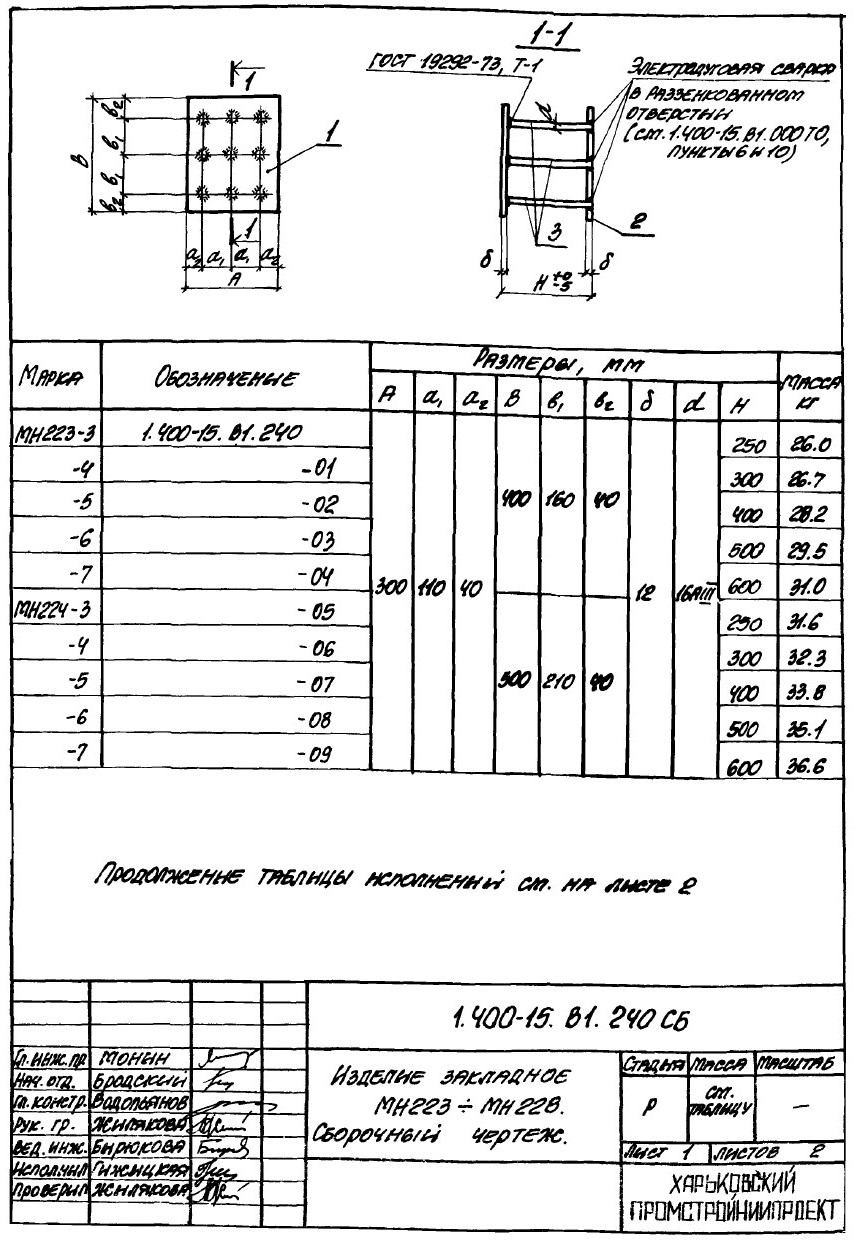 1-1
ГОСТ 19292-73, Т-1
Электродуговая сварка
в раззенкованном
отверстии
(см. 1.400-15.В1.000 ТО,
пункты 6 и 10)
1
1
1
2
3
В
в₂
в₁
в₁
в₂
а₂
а₁
а₁
а₂
А
d
δ
δ
Н +0 -5
Марка
Обозначение
Размеры, мм
Масса кг
А а₁ а₂ В в₁ в₂ δ d Н
МН223-3 1.400-15.В1.240 250 26.0
-4 -01 300 26.7
-5 -02 400 160 40 400 28.2
-6 -03 500 29.5
-7 -04 300 110 40 12 16АIII 600 31.0
МН224-3 -05 250 31.6
-4 -06 300 32.3
-5 -07 500 210 40 400 33.8
-6 -08 500 35.1
-7 -09 600 36.6
Продолжение таблицы исполнений см. на листе 2
1.400-15.В1.240 СБ
Гл. инж. пр. Монин
Нач. отд. Бродский
Гл. констр. Водопьянов
Рук. гр. Жилякова
Вед. инж. Бирюкова
Исполнил Гижицкая
Проверил Жилякова
Изделие закладное
МН223 ÷ МН228.
Сборочный чертеж.
Стадия Масса Масштаб
Р см. таблицу —
Лист 1 Листов 2
ХАРЬКОВСКИЙ
ПРОМСТРОЙНИИПРОЕКТ